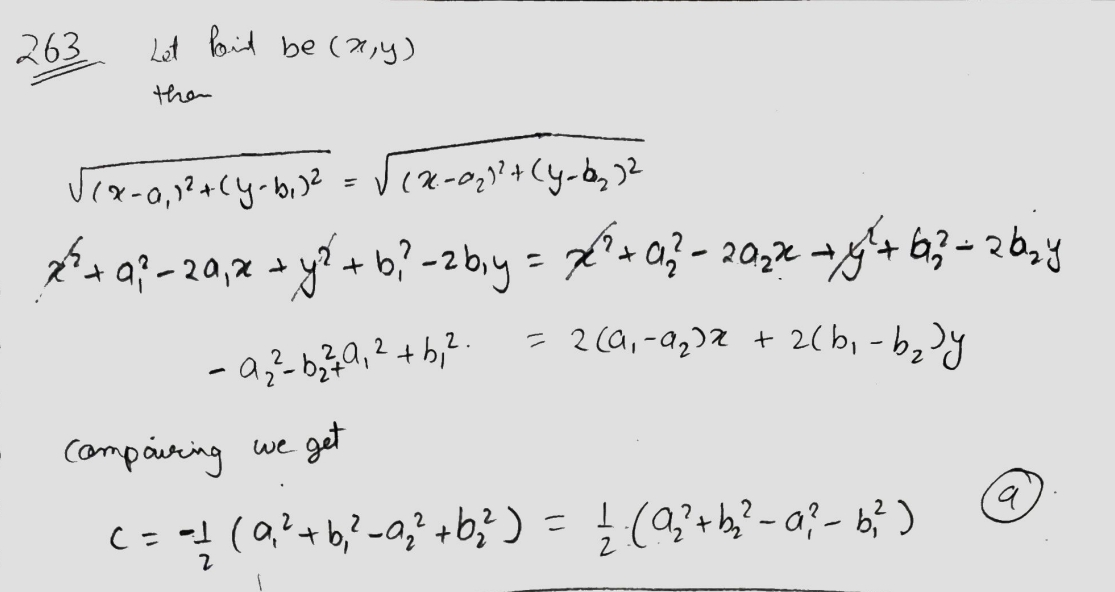 263 Let Point be (x,y)
then
√(x-a₁)²+(y-b₁)² = √(x-a₂)²+(y-b₂)²
x²+a₁²-2a₁x+y²+b₁²-2b₁y = x²+a₂²-2a₂x+y²+b₂²-2b₂y
-a₂²-b₂²+a₁²+b₁². = 2(a₁-a₂)x + 2(b₁-b₂)y
Compairing we get
c = -1/2 (a₁²+b₁²-a₂²+b₂²) = 1/2 (a₂²+b₂²-a₁²-b₁²) a